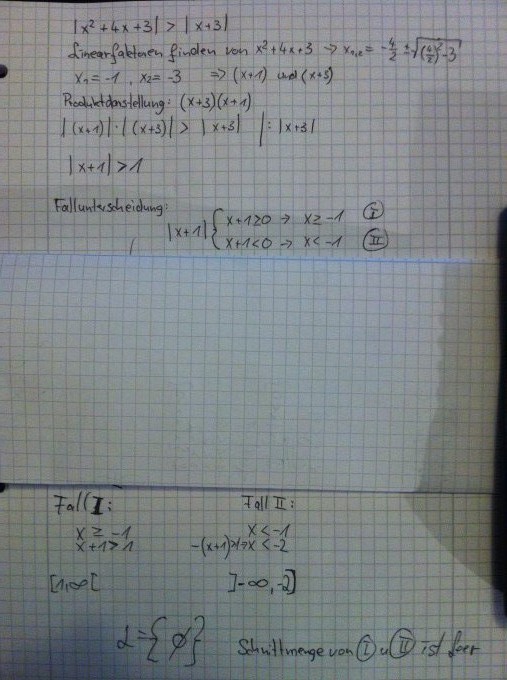 |x²+4x+3| > |x+3|
Linearfaktoren finden von x²+4x+3 → x₁,₂ = -4/2 ±√((4/2)²-3)
x₁=-1 , x₂=-3 ⇒ (x+1) und (x+3)
Produktdarstellung: (x+3)(x+1)
|(x+1)|·|(x+3)| > |x+3| |:|x+3|
|x+1|>1
Fallunterscheidung:
|x+1| { x+1≥0 → x≥-1 Ⓘ
x+1<0 → x<-1 Ⓘ︎Ⓘ
Fall I: Fall II:
x ≥ -1 x<-1
x+1>1 -(x+1)>1→x<-2
[1,∞[ ]-∞,-2]
L={∅} Schnittmenge von Ⓘ u ⒾⒾ ist leer